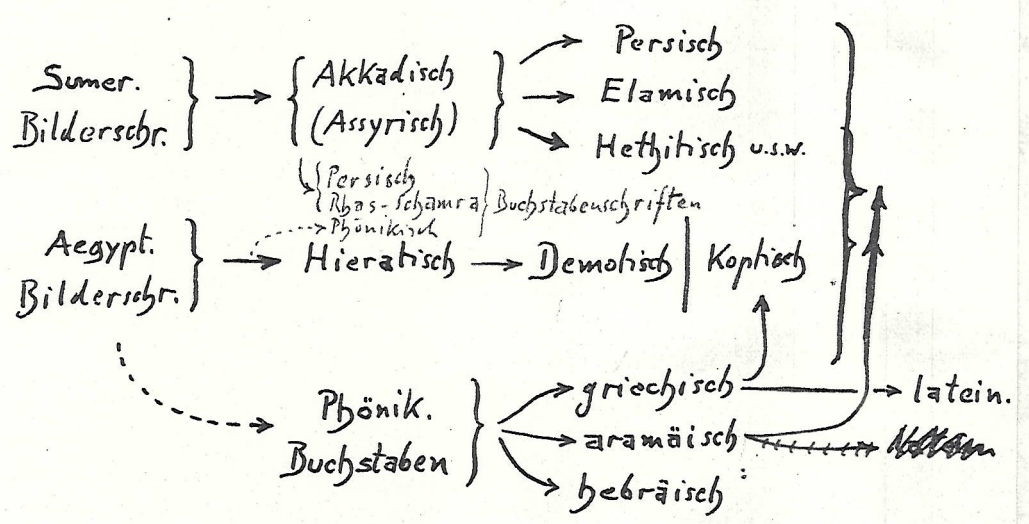 Sumer.
Bilderschr.
Akkadisch
(Assyrisch)
Persisch
Elamisch
Hethitisch u.s.w.
Persisch
Rhas-Schamra
Phönikisch
Buchstabenschriften
Aegypt.
Bilderschr.
Hieratisch
Demotisch
Koptisch
Phönik.
Buchstaben
griechisch
latein.
aramäisch
hebräisch